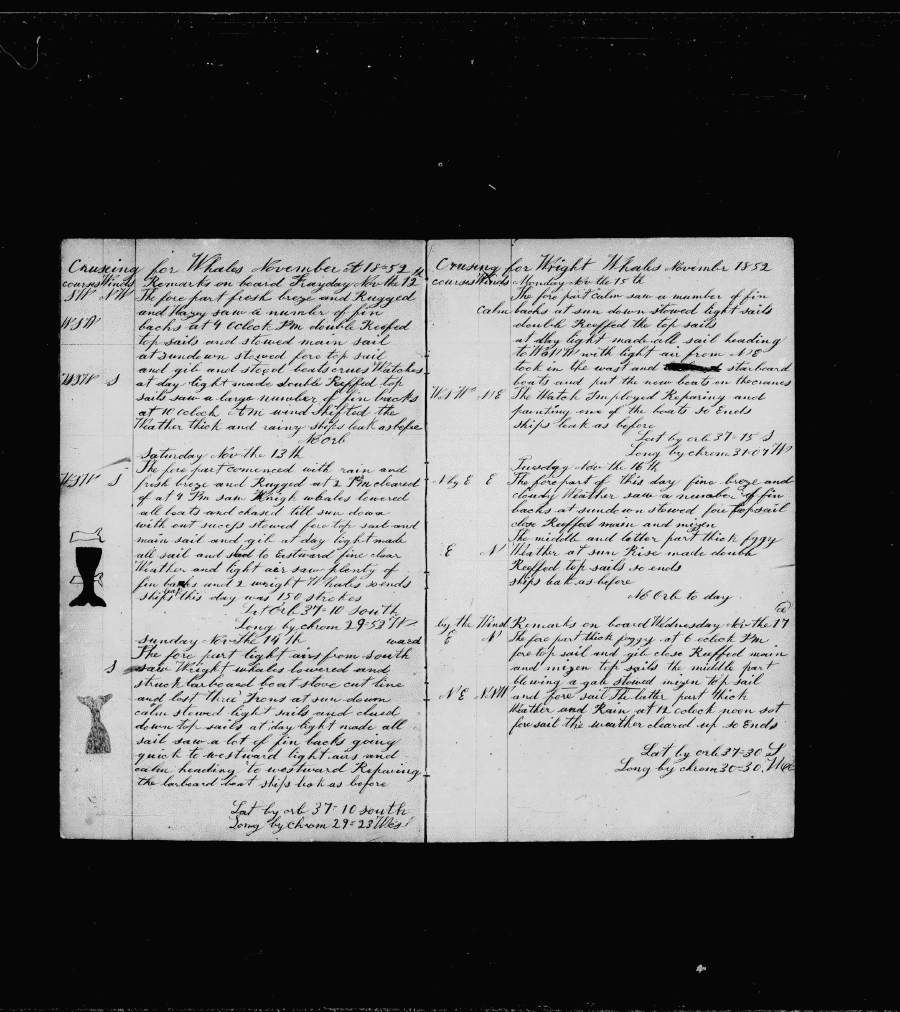 Cruseing for Whales November 1852
courses Winds Remarks on board Frayday Nov the 12 th
SW NW The fore part fresh breze and Rugged
and Hazy saw a number of fin
WSW backs at 4 Oclock Pm double Reefed
top sails and stowed main sail
at sundown stowed fore top sail
and gib and stood boats crues Watches
WSW S at day light made double Reffed top
sails saw a large number of fin backs
at 10 oclock Am wind shifted the
Weather thick and rainy ships leak as befor
No Orb
Saturday Nov the 13th
WSW S The fore part comenced with rain and
fresh breze and Rugged at 2 Pm cleared
of at 4 Pm saw Wrigh whales lowered
all boats and chased till sun down
with out sucess stowed fore top sail and
main sail and gib at day light made
all sail and stood to Eastward fine clear
Weather and light air saw plenty of
fin backs and 2 wright Whales so ends
ships leak this day was 150 strokes
Lat Orb 37-10 south
Long by chrom 29-52 W
sunday Nov the 14 th ward
The fore part light airs from south
S saw Wright whales lowered and
struck larboard boat stove cut line
and lost three Irons at sun down
calm stowed light sails and clued
down top sails at day light made all
sail saw a lot of fin backs going
quick to westward light airs and
calm heading to westward Repairing
the larboard boat ships leak as before
Lat by orb 37-10 south
Long by chrom 29-23 Wes
Crusing for Wright Whales Novembr 1852
courses Winds Monday Nov the 15 th
The fore part calm saw a number of fin
Calm backs at sun down stowed light sails
double Reeffed the top sails
at day light made all sail heading
to WSW with light air from NE
took in the wast and starboard
boats and put the new boats on the cranes
WSW NE The Watch Imployed Reparing and
painting one of the boats so Ends
ships leak as before
Lat by orb 37-15 S
Long by chrom 31-07 W
Tuesday Nov the 16 th
N by E E The fore part of this day fine breze and
cloudy Weather saw a number of fin
backs at sundown stowed fore top sail
close Reeffed main and mizen
The middle and latter part thick fggy
E N Weather at sun Rise made double
Reeffed top sails so ends
ships leak as before
No Orb to day
by the Wind Remarks on board Wednesday Nov the 17
E N The fore part thick foggy at 6 oclock Pm
fore top sail and gib close Reeffed main
and mizen top sails the middle part
blowing a gale stowed mizen top sail
NE NNW and fore sail The latter part thick
Weather and Rain at 12 oclock noon set
fore sail the weather cleared up so Ends
Lat by orb 37-30 S
Long by chrom 30-30 West